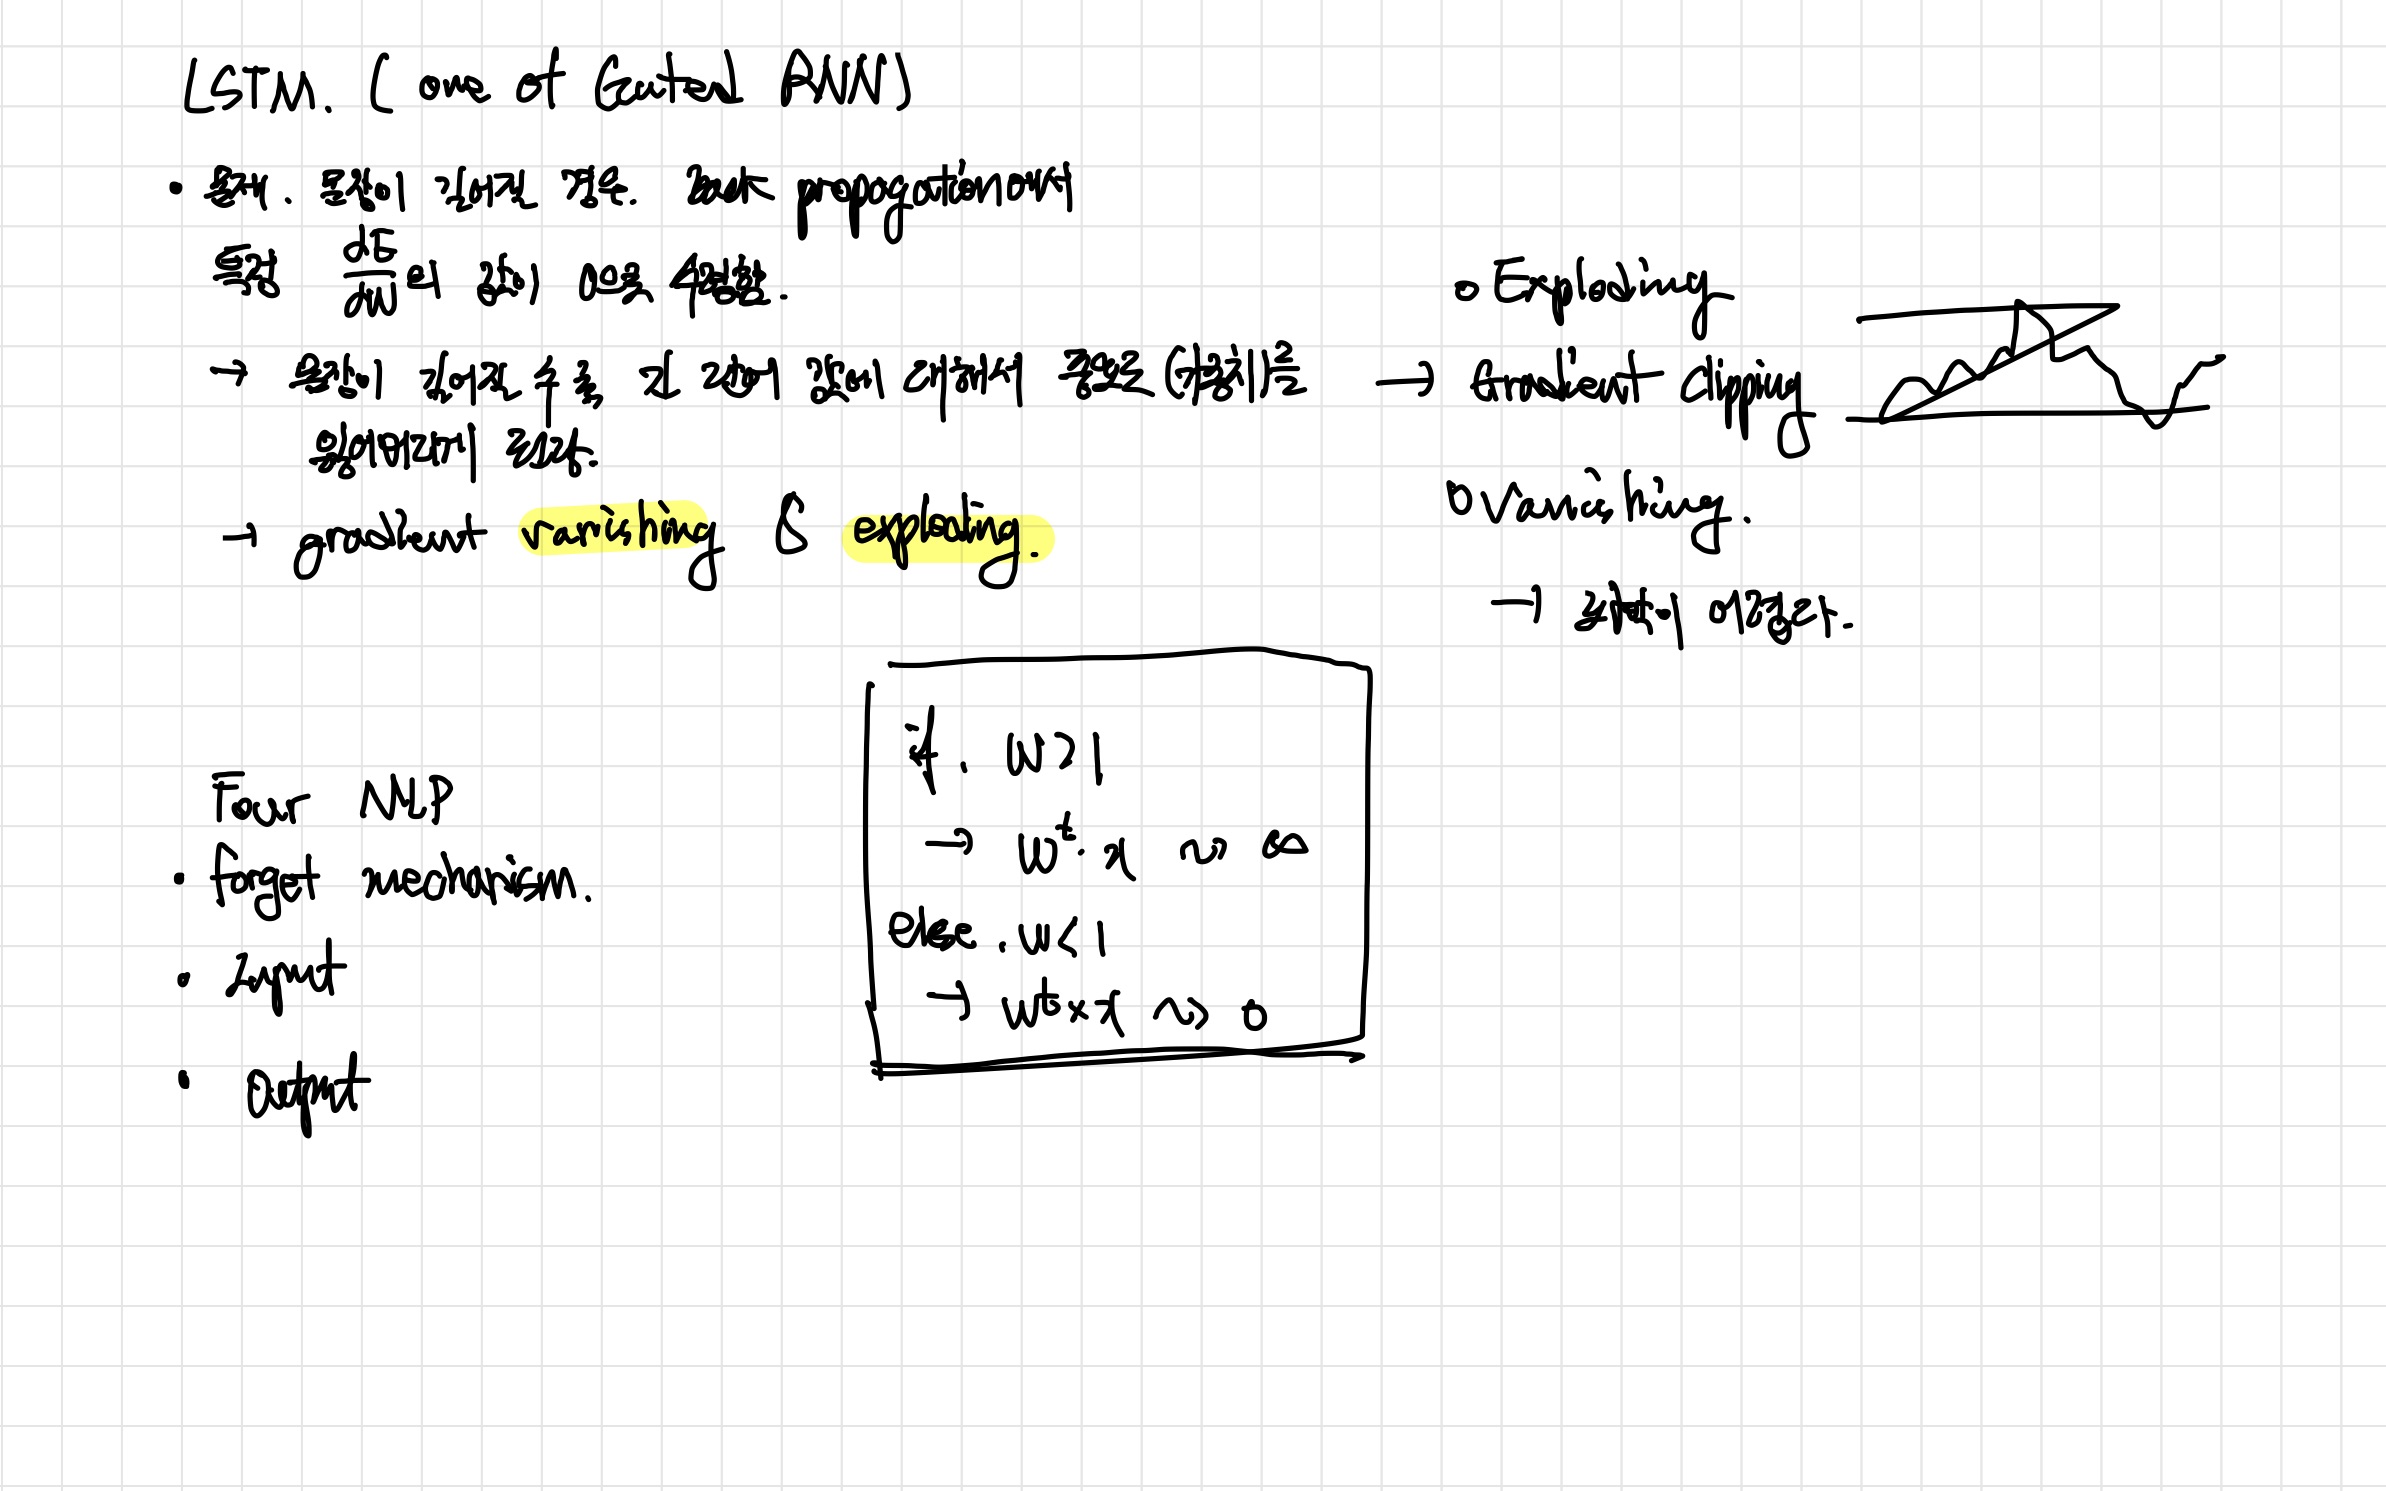 LSTM. (one of Gated RNN)
• 문제. 문장이 길어질 경우. back propogation에서
특정 dE/dW의 값이 0으로 수렴함.
→ 문장이 길어질 수록 지 값이 대해서 쪽으로
없어지게 된다.
→ gradient vanishing & exploding.
o Exploding
→ Gradient clipping
o Vanishing.
→ 어렵다.
if. W>1
→ W^t. x ~> ∞
else. w<1
→ w^t × x ~> 0
Four NLP
• forget mechanism.
• Input
• output